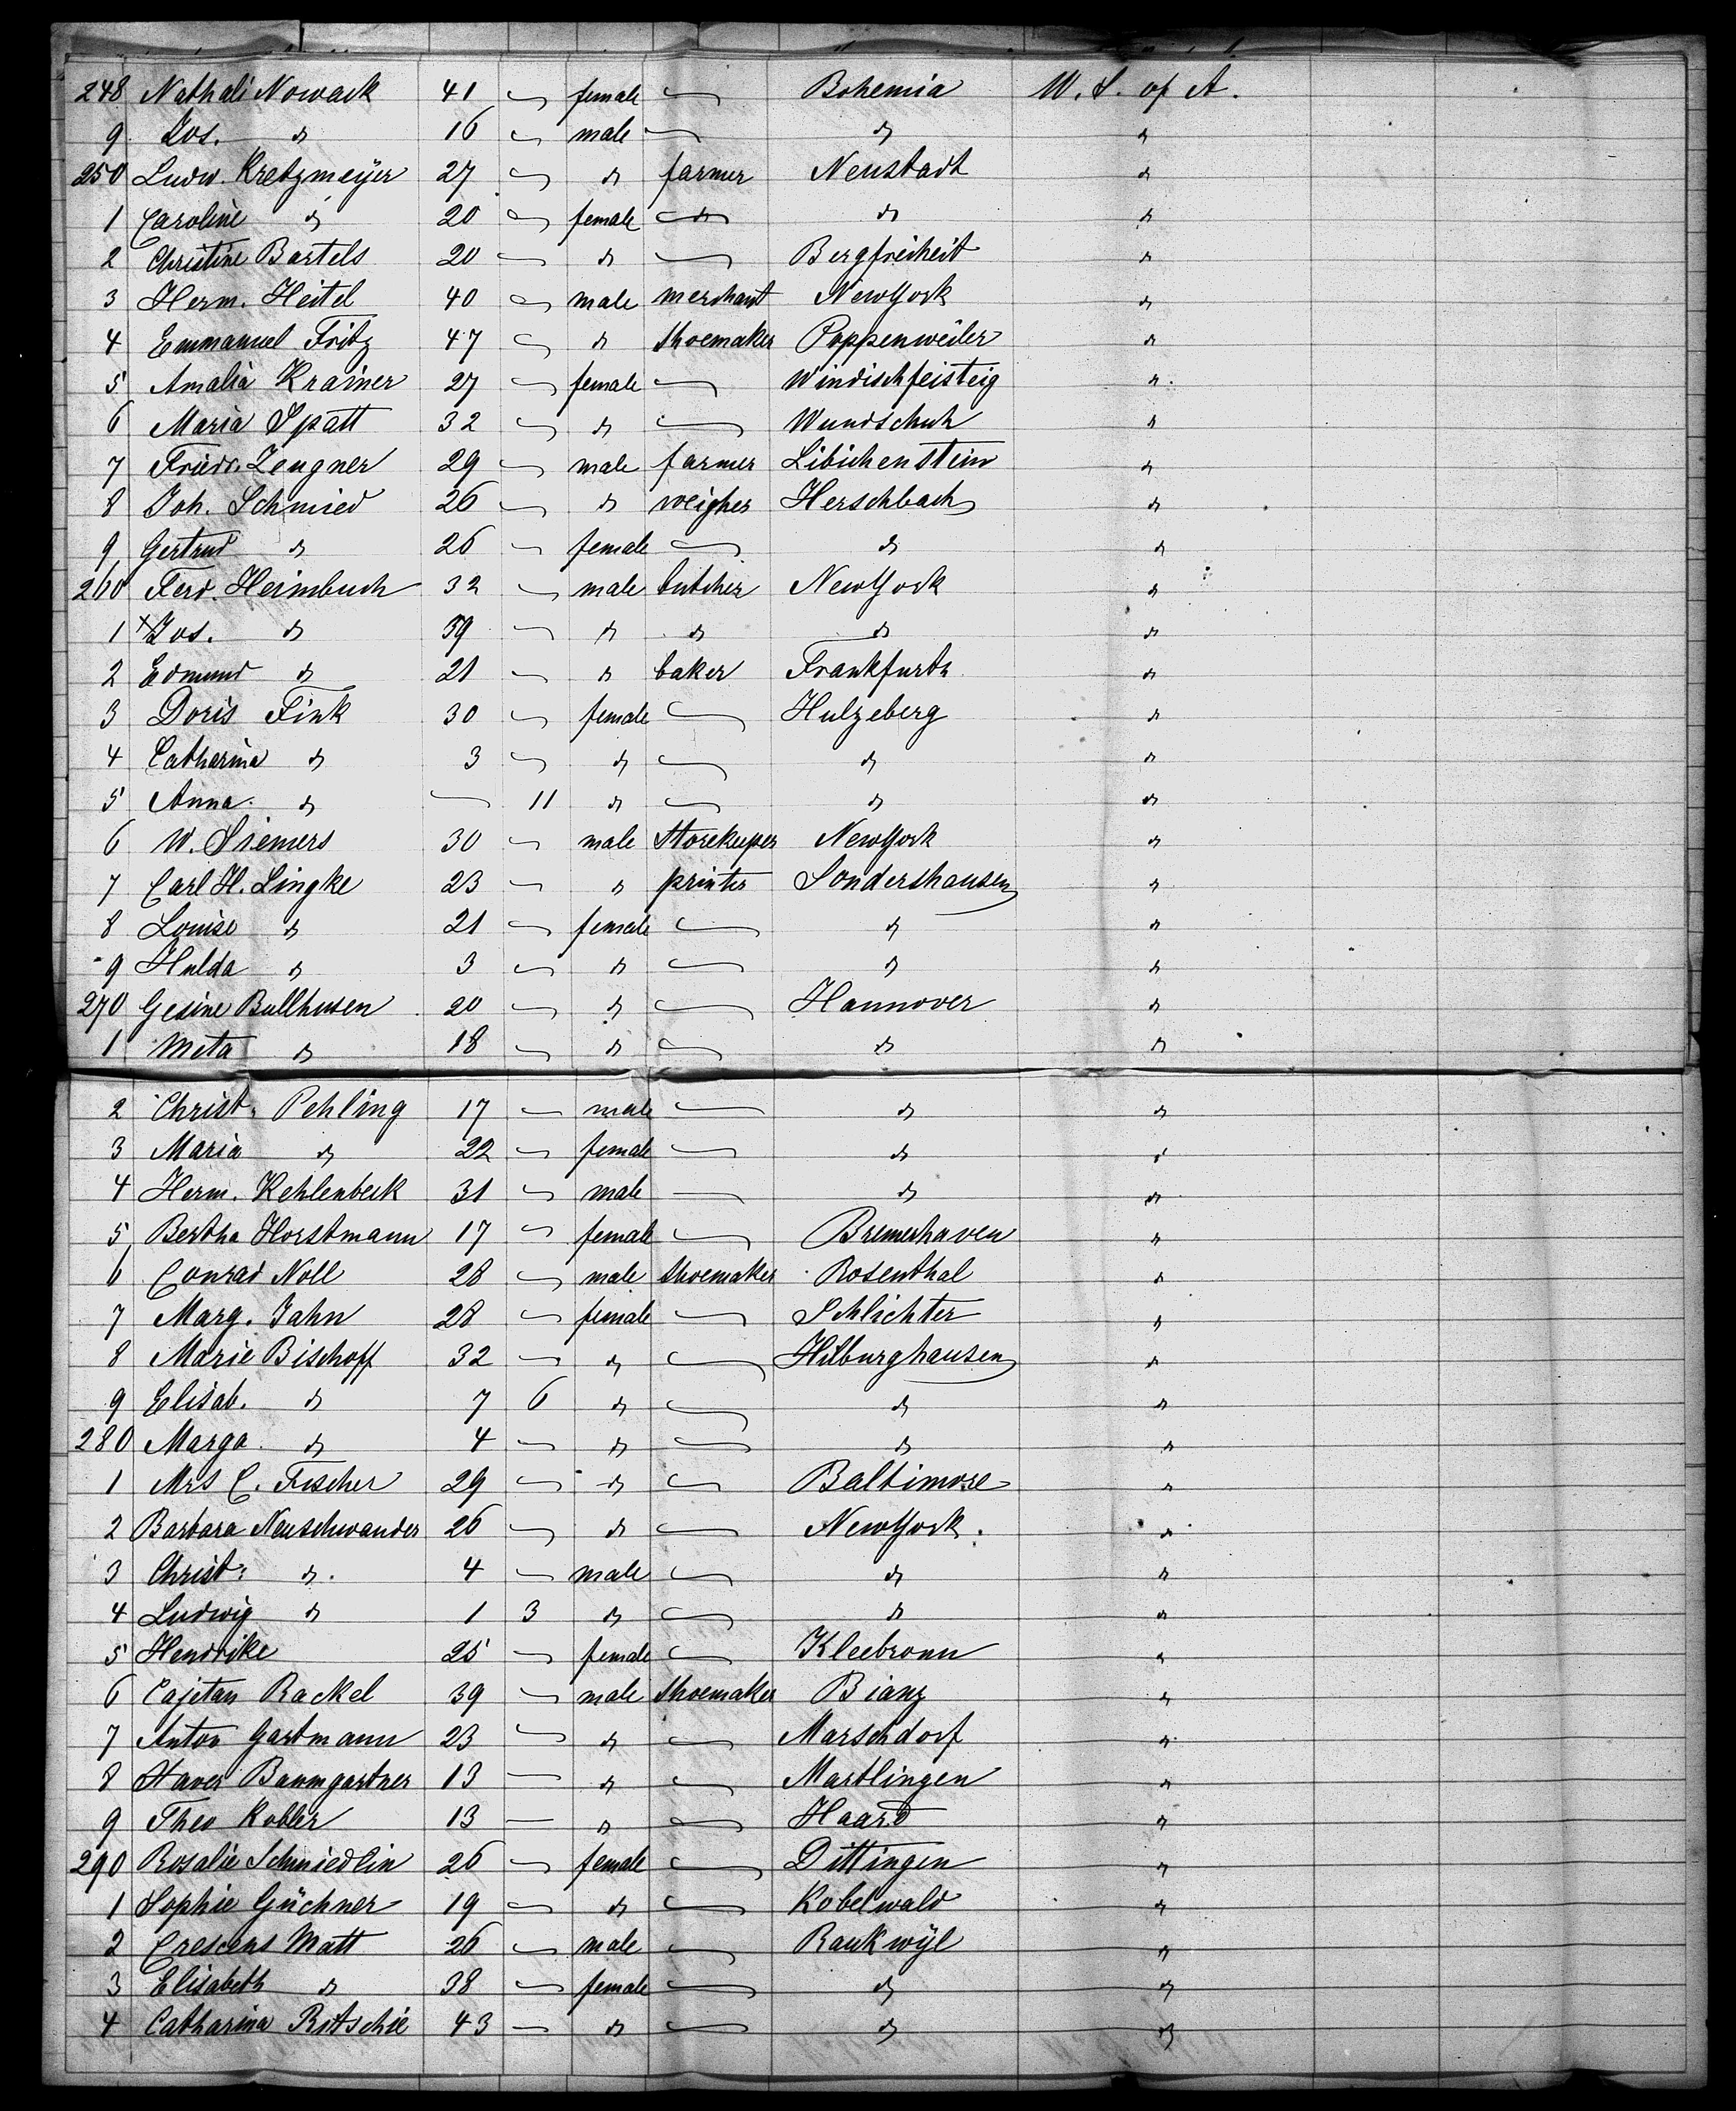 248 Nathali Nowack 41 — female — Bohemia U. S. of A.
9 Jos. " 16 — male — " "
250 Ludw. Kretzmeÿer 27 — " farmer Neustadt "
1 Caroline " 20 — female " " "
2 Christine Bartels 20 — " — Bergfreiheit "
3 Herm. Heitel 40 — male merchant NewYork "
4 Emmanuel Fritz 47 — " shoemaker Poppenweiler "
5 Amalia Krainer 27 — female — Windischfeisteig "
6 Maria Spatt 32 — " — Wundschuh "
7 Friedr. Zeugner 29 — male farmer Libichenstein "
8 Joh. Schmied 26 — " weigher Herschbach "
9 Gertrud " 26 — female — " "
260 Ferd. Heimbuch 32 — male butcher NewYork "
1 x Jos. " 39 — " " " "
2 Edmund " 21 — " baker Frankfurth "
3 Doris Fink 30 — female — Hulzeberg "
4 Catharina " 3 — " — " "
5 Anna " — 11 " — " "
6 W. Siemers 30 — male Storekeeper NewYork "
7 Carl H. Lingke 23 — " printer Sondershausen "
8 Louise " 21 — female — " "
9 Hulda " 3 — " — " "
270 Gesine Bullhusen 20 — " — Hannover "
1 Meta " 18 — " — " "
2 Christ. Pehling 17 — male — " "
3 Maria " 22 — female — " "
4 Herm. Kehlenbeck 31 — male — " "
5 Bertha Horstmann 17 — female — Bremerhaven "
6 Conrad Noll 28 — male shoemaker Rosenthal "
7 Marg. Jahn 28 — female — Schlichter "
8 Marie Bischoff 32 — " — Hilburghausen "
9 Elisab. " 7 6 " — " "
280 Marga. " 4 — " — " "
1 Mrs C. Fischer 29 — " — Baltimore "
2 Barbara Neuschwander 26 — " — NewYork. "
3 Christ: " 4 — male — " "
4 Ludwig " 1 3 " — " "
5 Hendrike 25 — female — Kleebronn "
6 Cajetan Rackel 39 — male shoemaker Bianz "
7 Anton Gartmann 23 — " — Marschdorf "
8 Xaver Baumgartner 13 — " — Martlingen "
9 Theo Kobler 13 — " — Haard "
290 Rosalie Schmiedlin 26 — female — Dittingen "
1 Sophie Güchner 19 — " — Kobelwald "
2 Crescens Matt 26 — male — Rankwÿl "
3 Elisabeth " 38 — female — " "
4 Catharina Ritschie 43 — " — " "